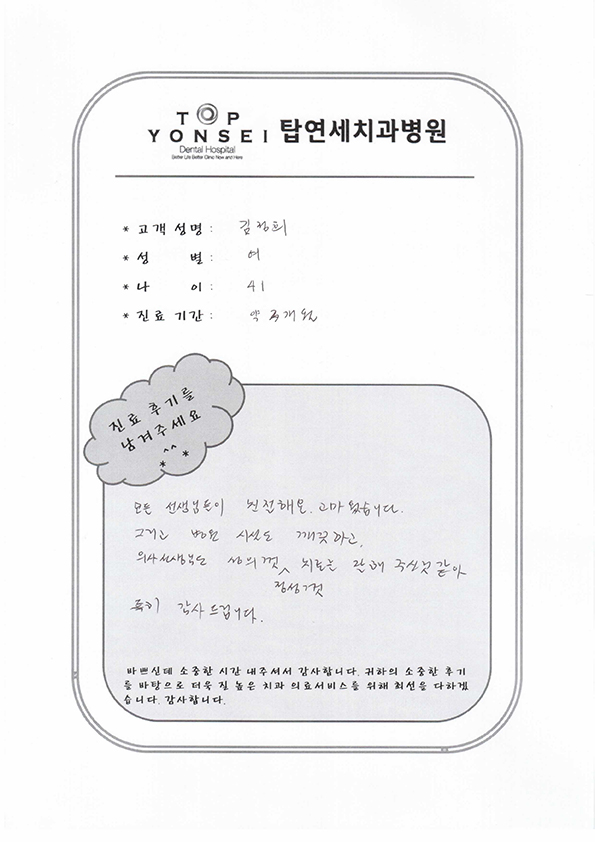 TOP
YONSEI 탑연세치과병원
Dental Hospital
Better Life Better Clinic Now and Here
* 고객 성명 : 김정희
* 성 별 : 여
* 나 이 : 41
* 진료 기간 : 약 3개월
진료 후기를
남겨주세요
^^
* *
모든 선생님들이 친절해요. 고마웠습니다.
그리고 병원 시설도 깨끗하고,
의사선생님도 성의껏 정성껏 치료를 잘해 주신것 같아
특히 감사드립니다.
바쁘실텐데 소중한 시간 내주셔서 감사합니다. 귀하의 소중한 후기
를 바탕으로 더욱 질 높은 치과 의료서비스를 위해 최선을 다하겠
습니다. 감사합니다.